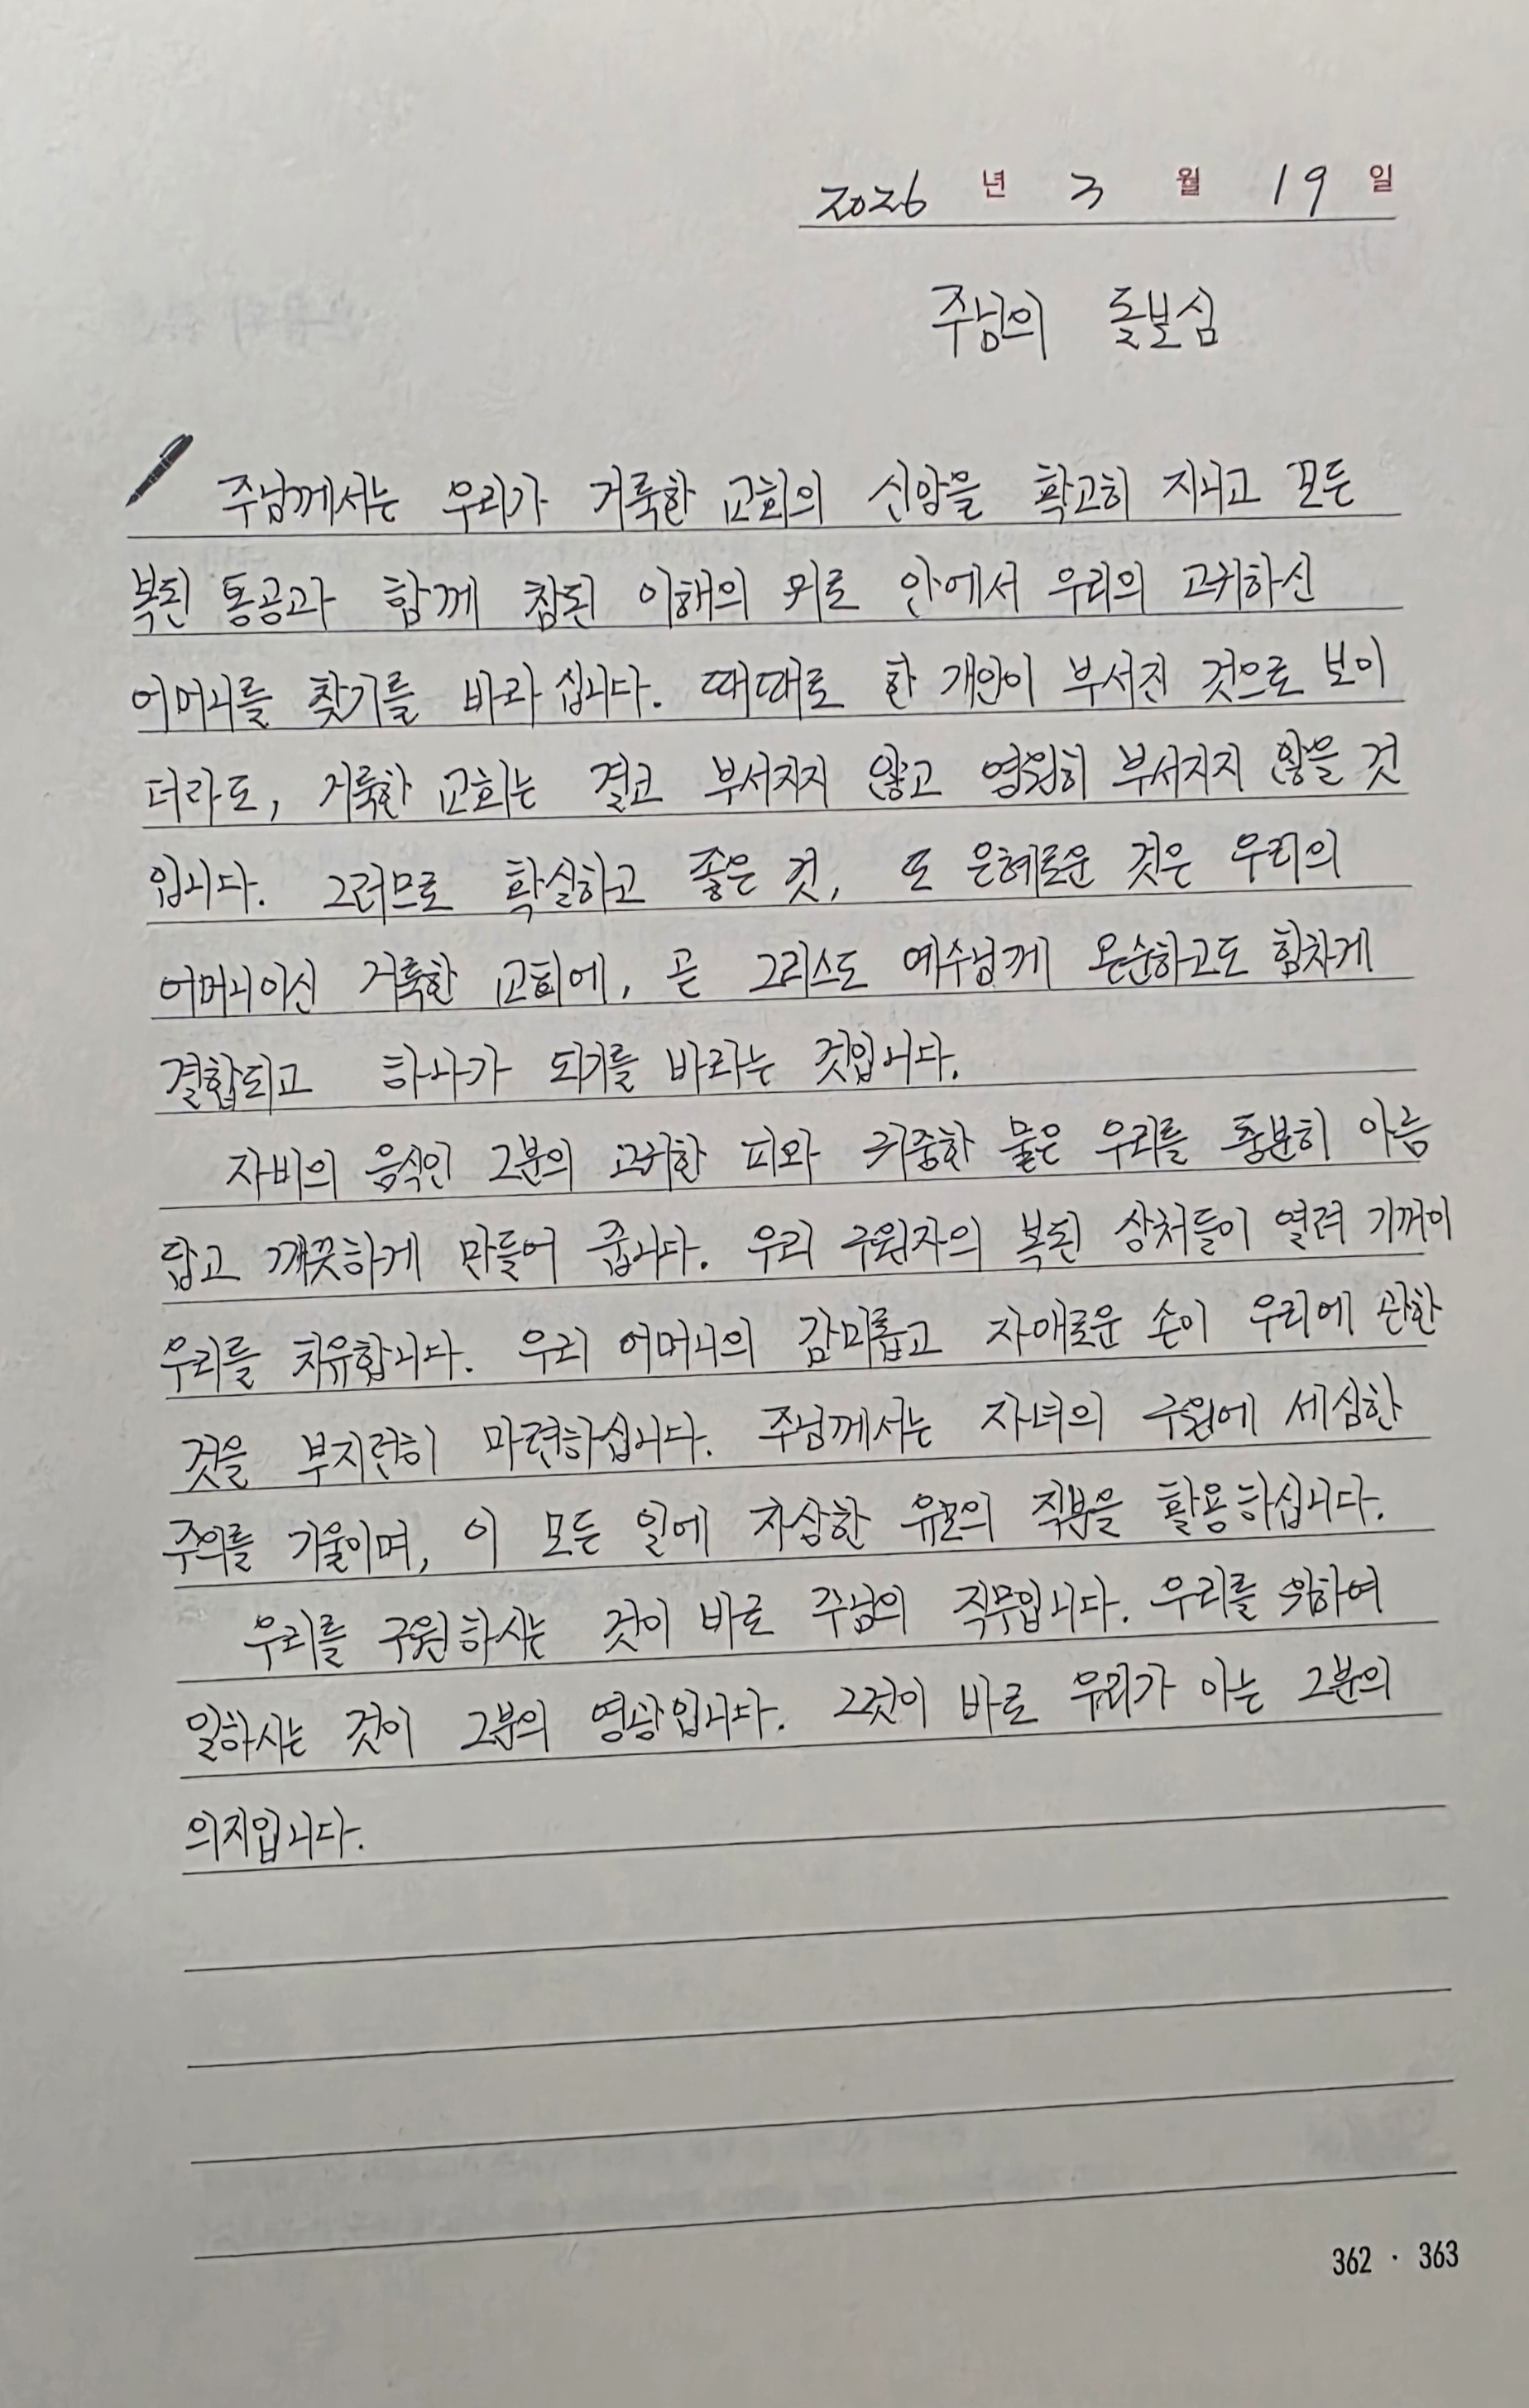 2026 년 3 월 19 일
주님의 돌보심
주님께서는 우리가 거룩한 교회의 신앙을 확고히 지니고 모든
복된 통공과 함께 참된 이해의 위로 안에서 우리의 고귀하신
어머니를 찾기를 바라십니다. 때때로 한 개인이 부서진 것으로 보이
더라도, 거룩한 교회는 결코 부서지지 않고 영원히 부서지지 않을 것
입니다. 그러므로 확실하고 좋은 것, 또 은혜로운 것은 우리의
어머니이신 거룩한 교회에, 곧 그리스도 예수님께 온순하고도 힘차게
결합되고 하나가 되기를 바라는 것입니다.
자비의 음식인 그분의 고귀한 피와 귀중한 물은 우리를 충분히 아름
답고 깨끗하게 만들어 줍니다. 우리 구원자의 복된 상처들이 열려 기꺼이
우리를 치유합니다. 우리 어머니의 감미롭고 자애로운 손이 우리에 관한
것을 부지런히 마련하십니다. 주님께서는 자녀의 구원에 세심한
주의를 기울이며, 이 모든 일에 자상한 유모의 직분을 활용하십니다.
우리를 구원하시는 것이 바로 주님의 직무입니다. 우리를 위하여
일하시는 것이 그분의 영광입니다. 그것이 바로 우리가 아는 그분의
의지입니다.
362 · 363